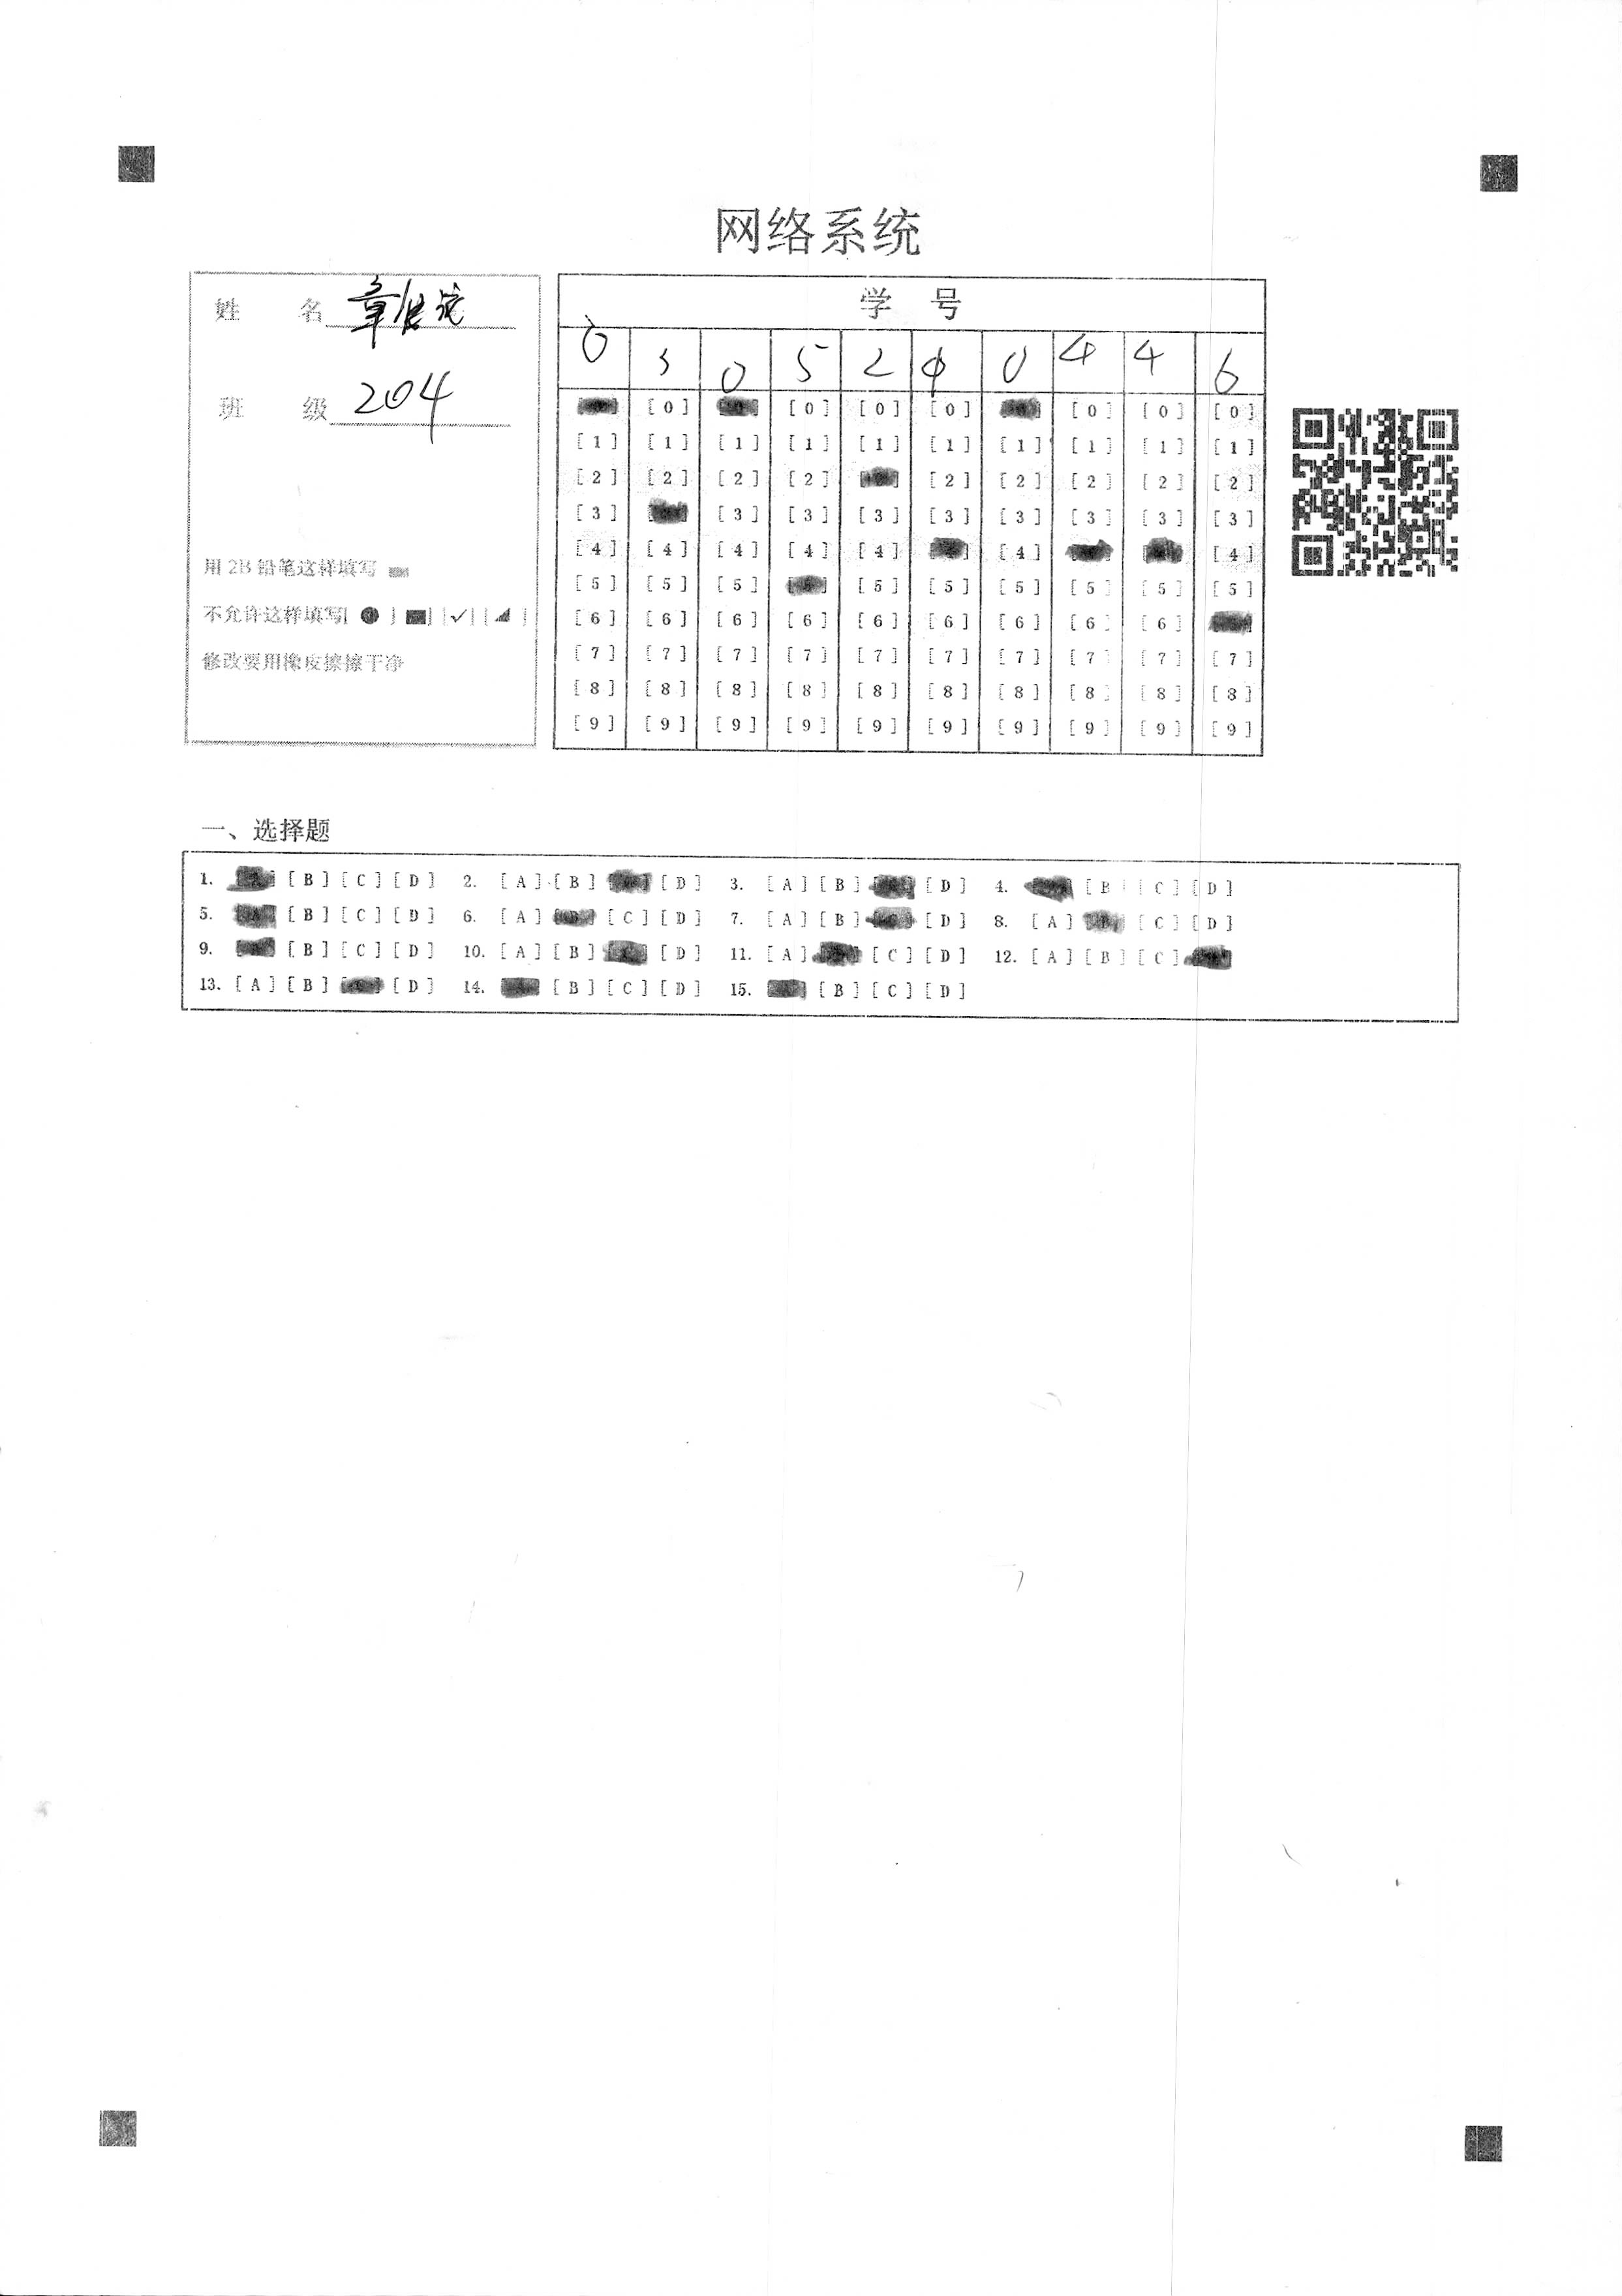 网络系统
姓 名 章
班 级 204
用 2B 铅笔这样填写
不允许这样填写[ ● ] [■] [✓] [◢ ]
修改要用橡皮擦擦干净
学 号
0 3 0 5 2 4 0 4 4 6
[0] [0] [0] [0] [0] [0] [0]
[1] [1] [1] [1] [1] [1] [1] [1] [1] [1]
[2] [2] [2] [2] [2] [2] [2] [2] [2]
[3] [3] [3] [3] [3] [3] [3] [3] [3]
[4] [4] [4] [4] [4] [4] [4]
[5] [5] [5] [5] [5] [5] [5] [5] [5]
[6] [6] [6] [6] [6] [6] [6] [6] [6]
[7] [7] [7] [7] [7] [7] [7] [7] [7] [7]
[8] [8] [8] [8] [8] [8] [8] [8] [8] [8]
[9] [9] [9] [9] [9] [9] [9] [9] [9] [9]
一、选择题
1. [B] [C] [D] 2. [A] [B] [D] 3. [A] [B] [D] 4. [B] [C] [D]
5. [B] [C] [D] 6. [A] [C] [D] 7. [A] [B] [D] 8. [A] [B] [C] [D]
9. [B] [C] [D] 10. [A] [B] [D] 11. [A] [C] [D] 12. [A] [B] [C]
13. [A] [B] [D] 14. [B] [C] [D] 15. [B] [C] [D]